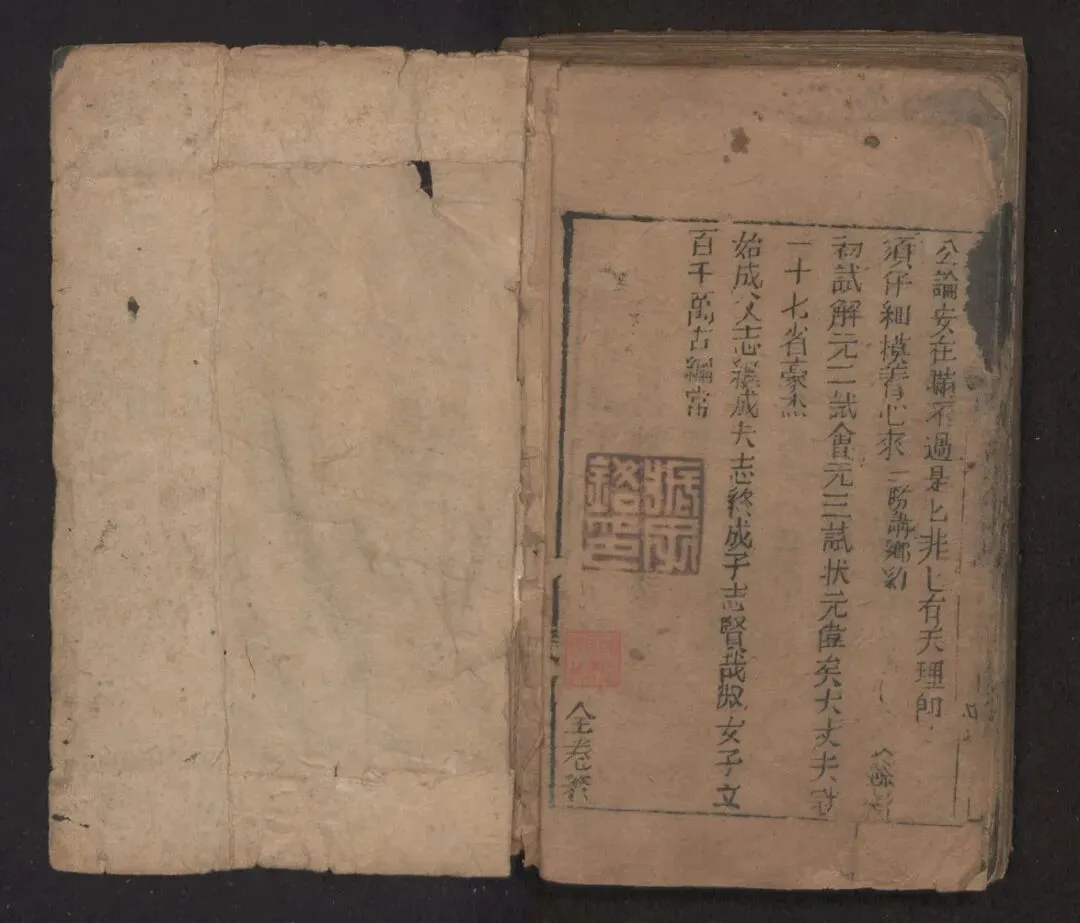 公論安在瞞不過是匕非匕有天理即
須仔細摸着心來
初試解元二試會元三試狀元偉矣大丈夫
一十七省豪杰
始成父志繼成夫志終成子志賢哉淑女子立
百千萬古綱常
全卷終